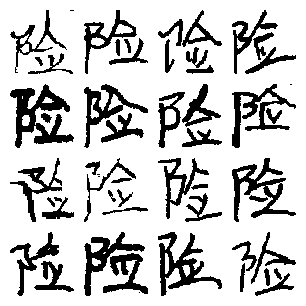 险险险险
险险险险
险险险险
险险险险